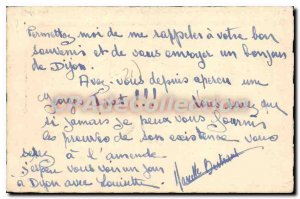 Permettez moi de me rappeler à votre bon
souvenir et de vous envoyer un bonjour
de Dijon.
Avez-vous depuis aperçu une
!!! que
si jamais je peux vous fournir
les preuves de son existence vous
serez à l'amende
J'espère vous voir un jour
à Dijon avec